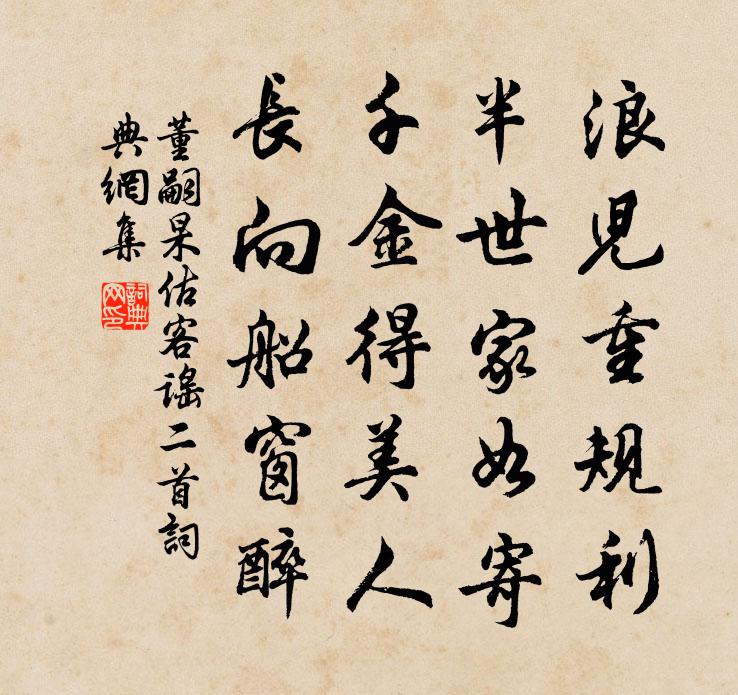 浪兒重規利
半世家如寄
千金得美人
長向船窗醉
董嗣杲估客謠二首詞
典網集
詞典網印